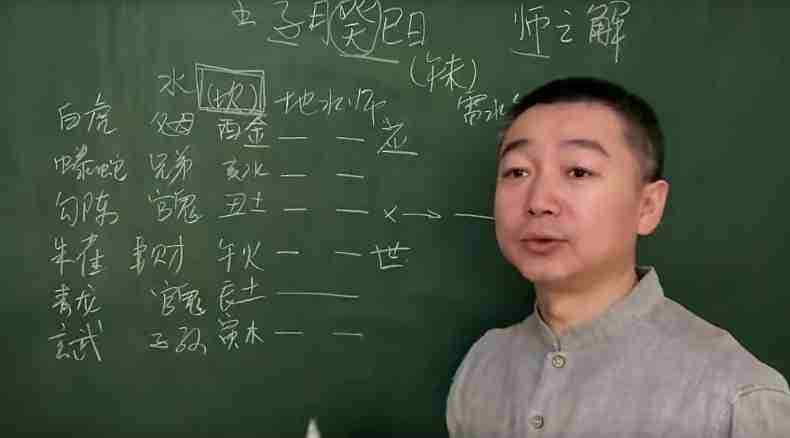 壬子月癸巳日 师之解
(午未)
水 (坎) 地水师 雷水
白虎 父母 酉金 — — 应
螣蛇 兄弟 亥水 — —
勾陈 官鬼 丑土 — — × → —
朱雀 妻财 午火 — — 世
青龙 官鬼 辰土 ——
玄武 子孙 寅木 — —